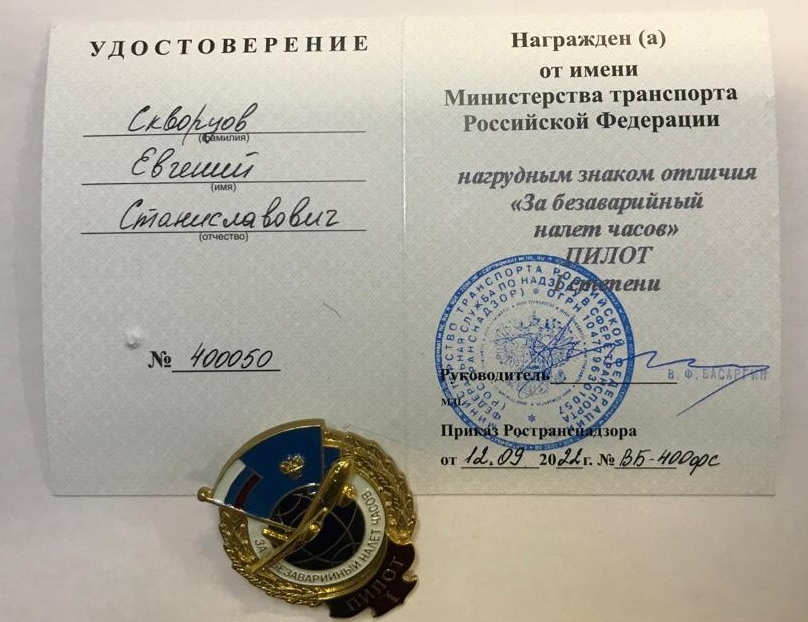 УДОСТОВЕРЕНИЕ
Скворцов
(фамилия)
Евгений
(имя)
Станиславович
(отчество)
№ 400050
Награжден (а)
от имени
Министерства транспорта
Российской Федерации
нагрудным знаком отличия
«За безаварийный
налет часов»
ПИЛОТ
I степени
МИНИСТЕРСТВО ТРАНСПОРТА РОССИЙСКОЙ ФЕДЕРАЦИИ
ФЕДЕРАЛЬНАЯ СЛУЖБА ПО НАДЗОРУ В СФЕРЕ ТРАНСПОРТА
(РОСТРАНСНАДЗОР) * ОГРН 1047796301057
Руководитель
В.Ф.БАСАРГИН
м.п.
Приказ Ространснадзора
от 12.09 2022 г. № ВБ-400фс
ЗА БЕЗАВАРИЙНЫЙ НАЛЕТ ЧАСОВ
ПИЛОТ
I